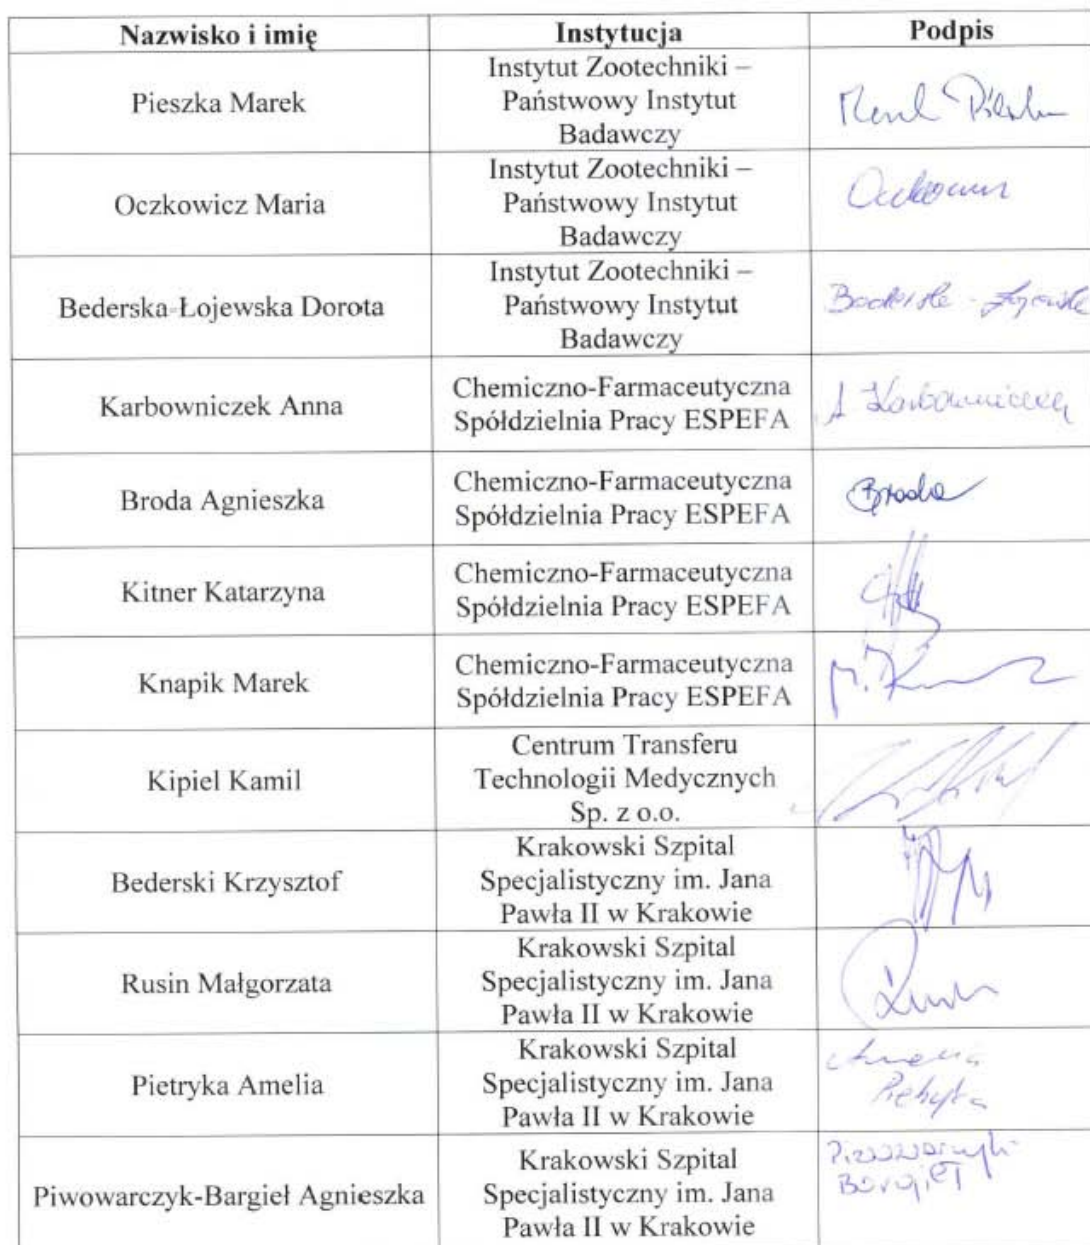 Nazwisko i imię Instytucja Podpis
Pieszka Marek
Instytut Zootechniki –
Państwowy Instytut
Badawczy
Oczkowicz Maria
Instytut Zootechniki –
Państwowy Instytut
Badawczy
Bederska-Łojewska Dorota
Instytut Zootechniki –
Państwowy Instytut
Badawczy
Karbowniczek Anna
Chemiczno-Farmaceutyczna
Spółdzielnia Pracy ESPEFA
A Karbowniczek
Broda Agnieszka
Chemiczno-Farmaceutyczna
Spółdzielnia Pracy ESPEFA
Broda
Kitner Katarzyna
Chemiczno-Farmaceutyczna
Spółdzielnia Pracy ESPEFA
Knapik Marek
Chemiczno-Farmaceutyczna
Spółdzielnia Pracy ESPEFA
Kipiel Kamil
Centrum Transferu
Technologii Medycznych
Sp. z o.o.
Bederski Krzysztof
Krakowski Szpital
Specjalistyczny im. Jana
Pawła II w Krakowie
Rusin Małgorzata
Krakowski Szpital
Specjalistyczny im. Jana
Pawła II w Krakowie
Pietryka Amelia
Krakowski Szpital
Specjalistyczny im. Jana
Pawła II w Krakowie
Amelia
Pietryka
Piwowarczyk-Bargieł Agnieszka
Krakowski Szpital
Specjalistyczny im. Jana
Pawła II w Krakowie